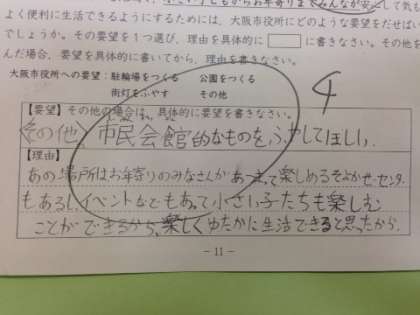 小さい子どもからお年寄りまでみんなが安心して気も
よく便利に生活できるようにするためには、大阪市役所にどのような要望をだせばい
でしょうか。その要望を1つ選び、理由を具体的に□に書きなさい。その他を
んだ場合、要望を具体的に書いてから、理由を書きなさい。
大阪市役所への要望:駐輪場をつくる 公園をつくる
街灯をふやす その他
4
【要望】その他の場合は、具体的に要望を書きなさい。
その他、市民会館的なものを、ふやしてほしい。
【理由】
あの場所はお年寄りのみなさんがあつまって楽しめる センタ
もあるし、イベントなどもあって小さい子たちも楽しむ
ことができるから、楽しくゆたかに生活できると思ったから。
-11-